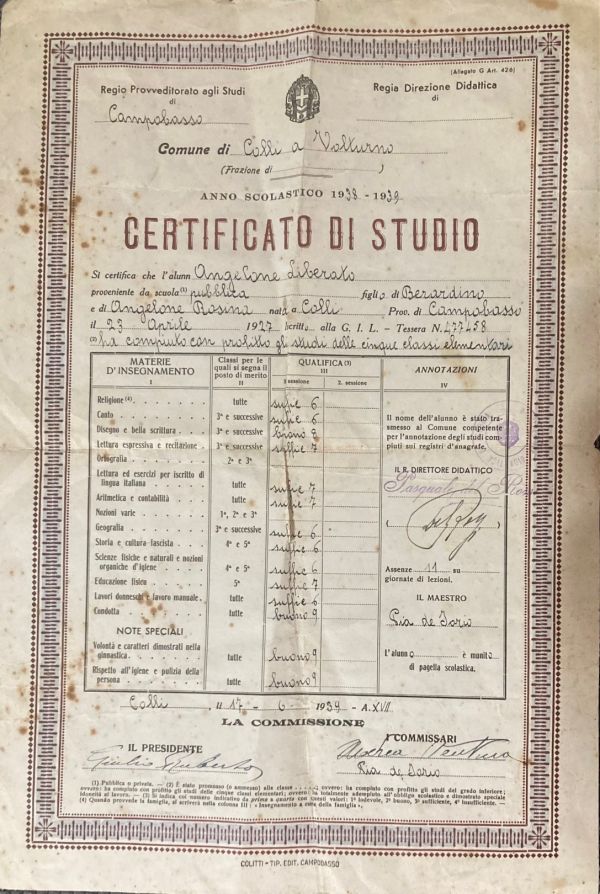 (Allegato G Art. 426)
Regio Provveditorato agli Studi
di
Campobasso
Regia Direzione Didattica
di
Comune di Colli a Volturno
(Frazione di )
ANNO SCOLASTICO 1938 - 1939
CERTIFICATO DI STUDIO
Si certifica che l'alunn Angelone Liberato
proveniente da scuola (1) pubblica figlio di Berardino
e di Angelone Rosina nato a Colli Prov. di Campobasso
il 23 Aprile 1927 iscritto alla G. I. L. - Tessera N. 477458
(2) ha compiuto con profitto gli studi delle cinque classi elementari
MATERIE D'INSEGNAMENTO I
Classi per le quali si segna il posto di merito II
QUALIFICA (3) III
1 sessione 2. sessione
ANNOTAZIONI IV
Religione (4) tutte suffic 6
Canto 3ª e successive suffic 6
Disegno e bella scrittura 3ª e successive buono
Lettura espressiva e recitazione 3ª e successive suffic 7
Ortografia 2ª e 3ª
Lettura ed esercizi per iscritto di lingua italiana tutte suffic 7
Aritmetica e contabilità tutte suffic 7
Nozioni varie 1ª, 2ª e 3ª
Geografia 3ª e successive suffic 6
Storia e cultura fascista 4ª e 5ª suffic 6
Scienze fisiche e naturali e nozioni organiche d'igiene 4ª e 5ª suffic 6
Educazione fisica 5ª suffic 7
Lavori donneschi e lavoro manuale tutte suffic 6
Condotta tutte buono 9
NOTE SPECIALI
Volontà e caratteri dimostrati nella ginnastica tutte buono 9
Rispetto all'igiene e pulizia della persona tutte buono 9
Il nome dell'alunno è stato trasmesso al Comune competente per l'annotazione degli studi compiuti sui registri d'anagrafe.
IL R. DIRETTORE DIDATTICO
Pasquale del
( )
Assenze 11 su
giornate di lezioni.
IL MAESTRO
Pia de Iorio
L'alunno è munito
di pagella scolastica.
Colli, il 17 - 6 - 1939 - A. XVII
LA COMMISSIONE
IL PRESIDENTE
Giulio
I COMMISSARI
Andrea Ventura
Pia de Iorio
(1) Pubblica o privata. — (2) È stato promosso (o ammesso) alla classe ; ovvero: ha compiuto con profitto gli studi del grado inferiore;
ovvero: ha compiuto con profitto gli studi delle cinque classi elementari; ovvero: ha totalmente adempiuto all'obbligo scolastico e dimostrato speciale
idoneità al lavoro. — (3) Si indica con numero indicativo da prima a quarta con questi valori: 1ª lodevole, 2ª buono, 3ª sufficiente, 4ª insufficiente. —
(4) Quando provvede la famiglia, si scriverà nella colonna III: « Insegnamento a cura della famiglia ».
COLITTI - TIP. EDIT. CAMPOBASSO